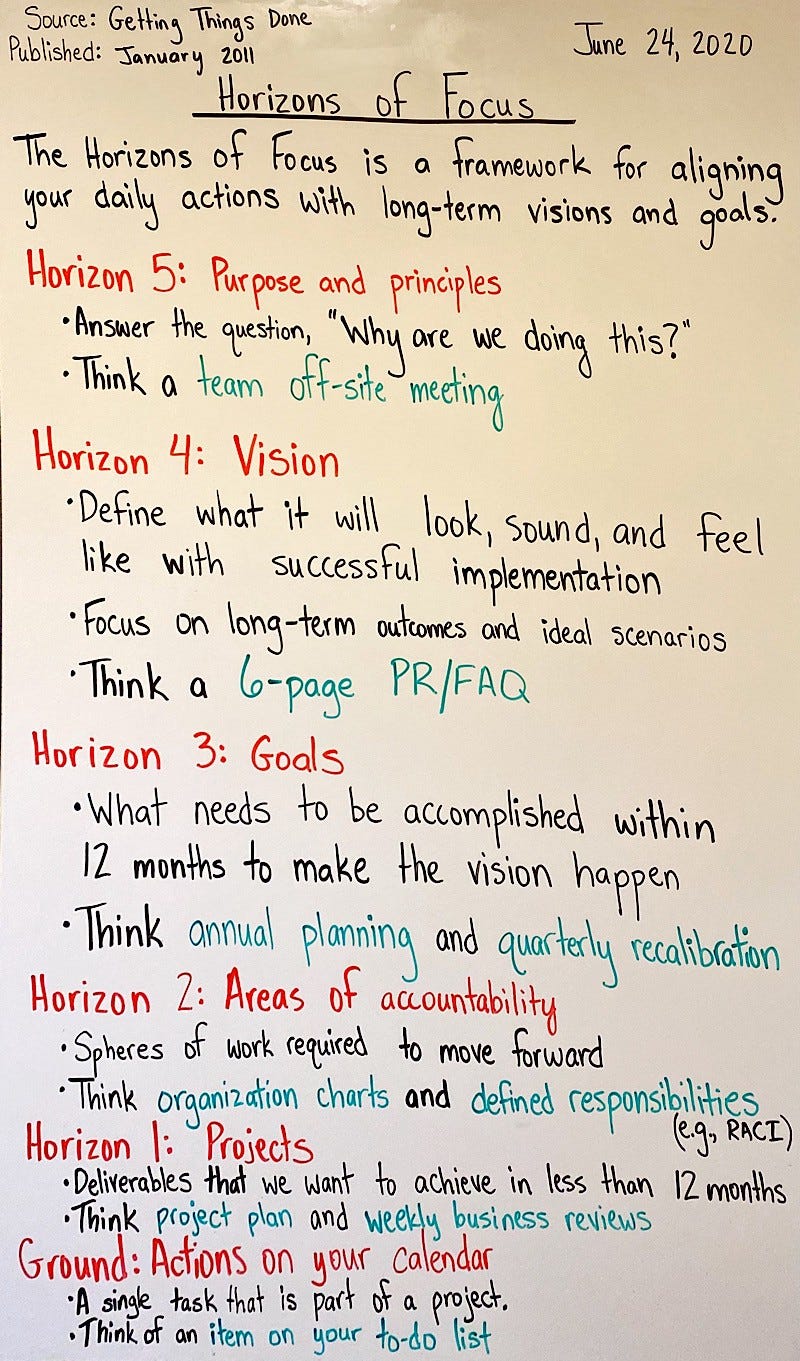 Source: Getting Things Done
Published: January 2011
June 24, 2020
Horizons of Focus
The Horizons of Focus is a framework for aligning
your daily actions with long-term visions and goals.
Horizon 5: Purpose and principles
•Answer the question, "Why are we doing this?"
•Think a team off-site meeting
Horizon 4: Vision
•Define what it will look, sound, and feel
like with successful implementation
•Focus on long-term outcomes and ideal scenarios
•Think a 6-page PR/FAQ
Horizon 3: Goals
•What needs to be accomplished within
12 months to make the vision happen
•Think annual planning and quarterly recalibration
Horizon 2: Areas of accountability
•Spheres of work required to move forward
•Think organization charts and defined responsibilities
(e.g., RACI)
Horizon 1: Projects
•Deliverables that we want to achieve in less than 12 months
•Think project plan and weekly business reviews
Ground: Actions on your calendar
•A single task that is part of a project.
•Think of an item on your to-do list